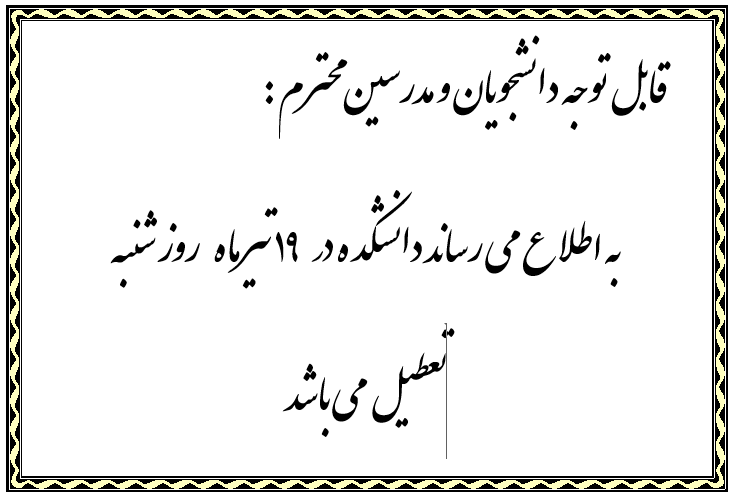 قابل توجه دانشجویان و مدرسین محترم :
به اطلاع می رساند دانشکده در ۱۹ تیرماه روز شنبه
تعطیل می باشد